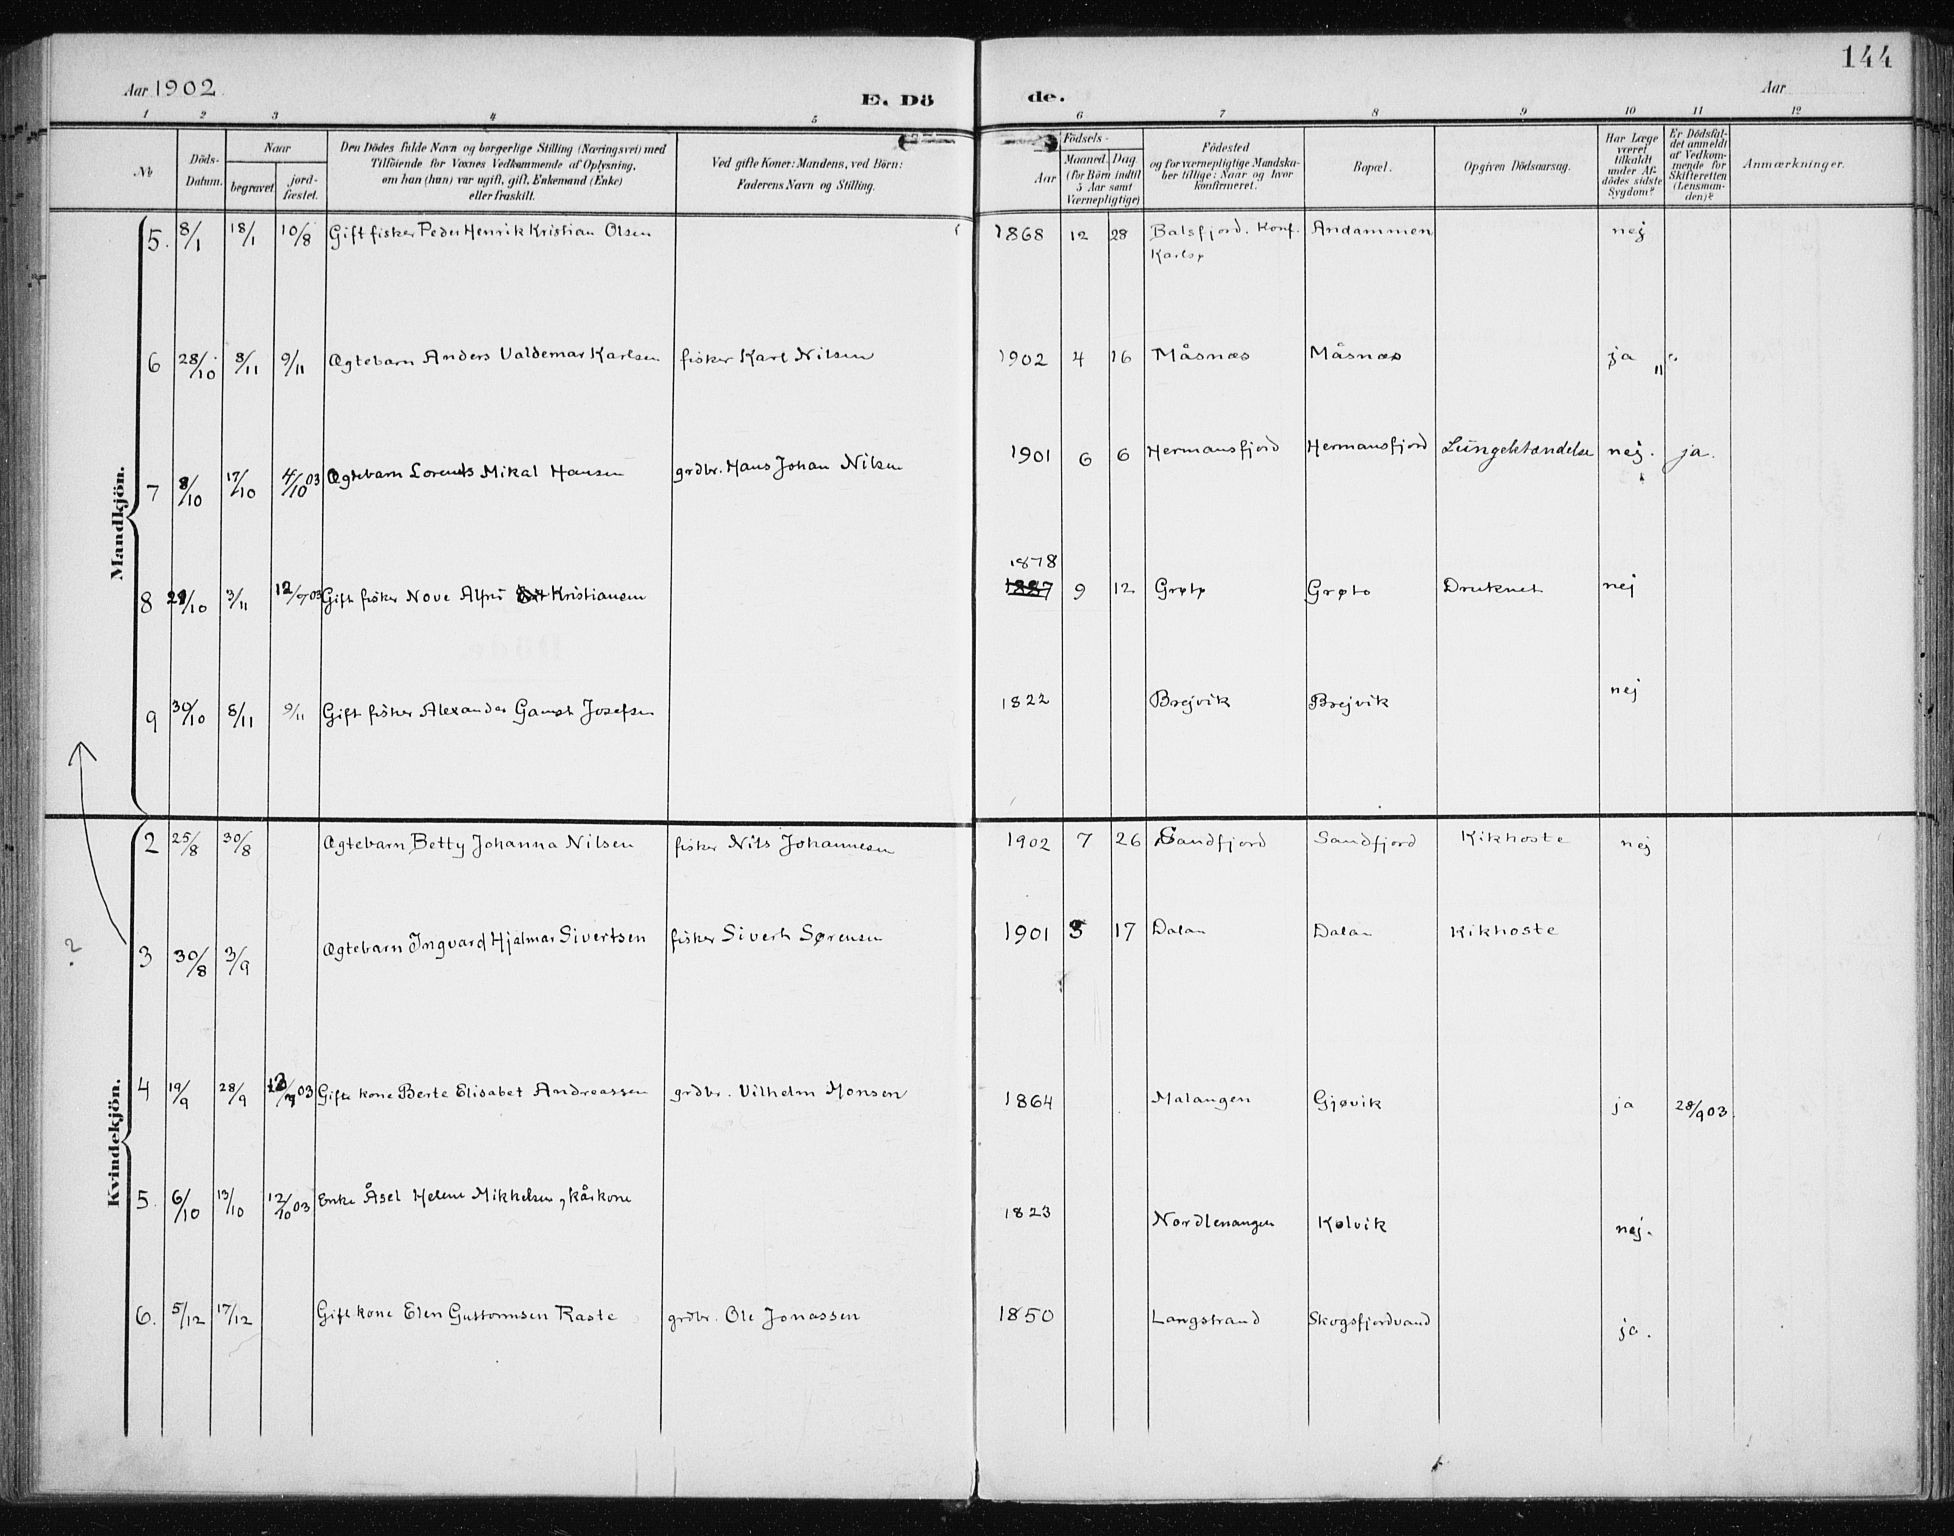 144
Aar 1902
E. Dö
de.
Aar
1 2 3 4 5 6 7 8 9 10 11 12
№
Döds-Datum.
Naar
begravet
jord-fæstet.
Den Dödes fulde Navn og borgerlige Stilling (Næringsvei) med
Tilföiende for Voxnes Vedkommende af Oplysning,
om han (hun) var ugift, gift, Enkemand (Enke)
eller fraskilt.
Ved gifte Koner: Mandens, ved Börn:
Faderens Navn og Stilling.
Födsels-
Aar
Maaned. Dag.
(for Börn indtil
5 Aar samt
Værnepligtige)
Födested
og for værnepligtige Mandska-
ber tillige: Naar og hvor
konfirmeret.
Bopæl.
Opgiven Dödsaarsag.
Har Læge
været
tilkaldt
under Af-
dödes sidste
Sygdom?
Er Dödsfal-
det anmeldt
af Vedkom-
mende for
Skifteretten
(Lensman-
den)?
Anmærkninger.
Mandkjön.
5. 8/1 18/1 10/8 Gift fisker Peder Henrik Kristian Olsen 1868 12 28 Balsfjord. Konf. Andammen nej
Karlsø
6 28/10 8/11 9/11 Ægtebarn Anders Valdemar Karlsen fisker Karl Nilsen 1902 4 16 Måsnæs Måsnæs ja
7 8/10 17/10 4/10 03 Ægtebarn Lorents Mikal Hansen grdbr. Hans Johan Nilsen 1901 6 6 Hermansfjord Hermansfjord Lungebtændelse nej. ja.
1878
8 29/10 3/11 12/7 03 Gift fisker Nove Alfri Kristiansen 1887 9 12 Grøtø Grøto Druknet nej
9 30/10 8/11 9/11 Gift fisker Alexander Gamst Josefsen 1822 Brejvik Brejvik nej
Kvindekjön.
2 25/8 30/8 Ægtebarn Betty Johanna Nilsen fisker Nils Johannesen 1902 7 26 Sandfjord Sandfjord Kikhoste nej
?
3 30/8 3/9 Ægtebarn Ingvard Hjalmar Sivertsen fisker Sivert Sørensen 1901 3 17 Dalan Dalan Kikhoste
4 19/9 28/9 12/7 03 Gift kone Berte Elisabet Andreassen grdbr. Vilhelm Monsen 1864 Malangen Gjøvik ja 28/9 03.
5. 6/10 13/10 12/10 03 Enke Åsel Helene Mikkelsen, kårkone 1823 Nordlenangen Kølvik nej.
6. 5/12 17/12 Gift kone Elen Guttormsen Raste grdbr. Ole Jonassen 1850 Langstrand Skogsfjordvand ja.